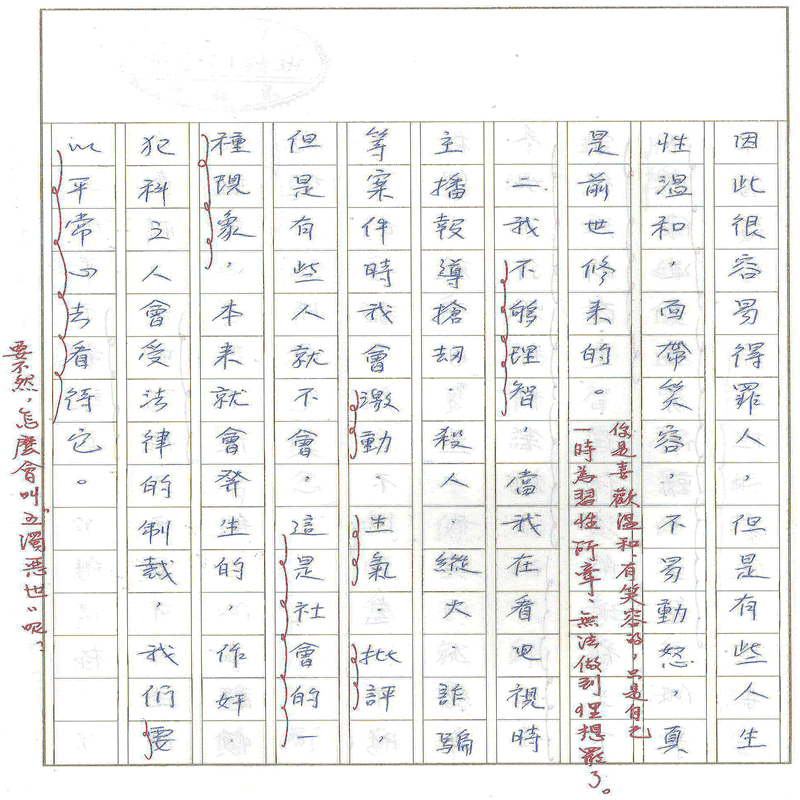 因此很容易得罪人,但是有些人生
性溫和,面帶笑容,不易動怒,真
是前世修来的。
你是喜歡溫和、有笑容的,只是自己
一時為習性所牽、無法做到理想罷了。
二我不够理智,當我在看电視時
主播報導搶劫.殺人.縱火.詐騙
等案件時我會激動 生氣 批評,
但是有些人就不會,這是社會的一
種現象,本来就會發生的,作奸
犯科之人會受法律的制裁,我們要
以平常心去看待它。
要不然,怎麼會叫"五濁惡世"呢?